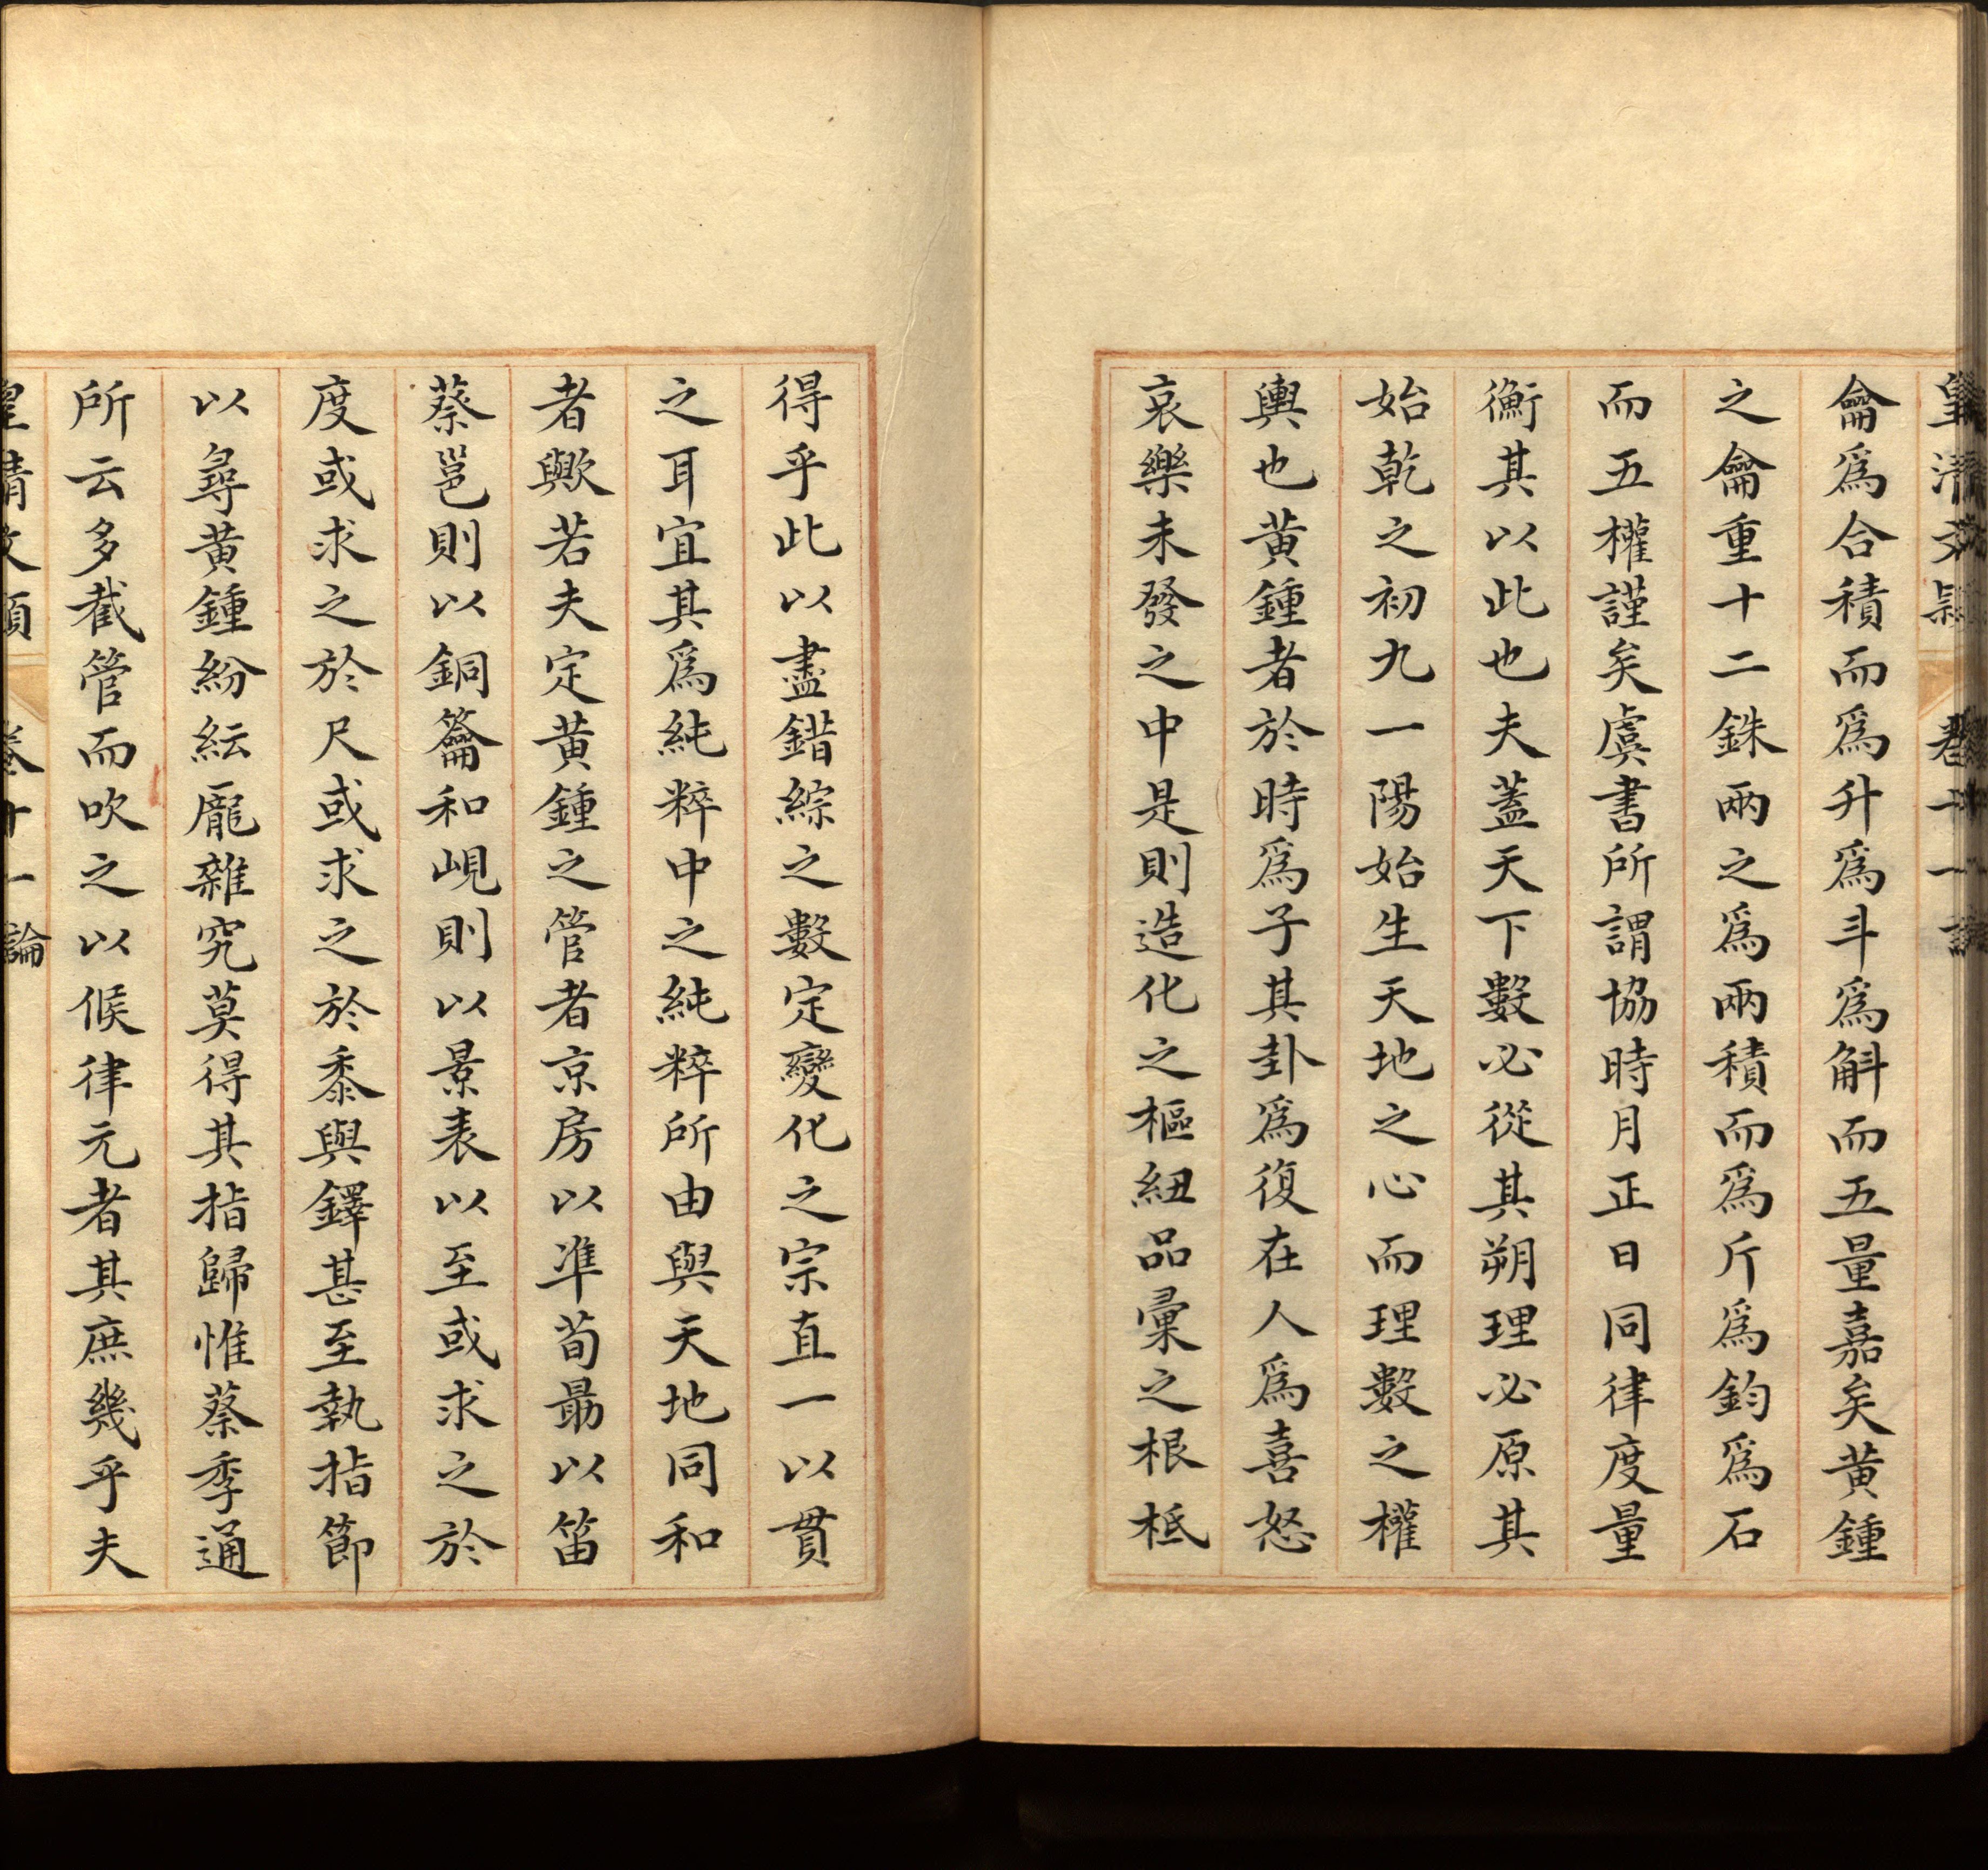 皇清文穎 卷十一 論
龠爲合積而爲升爲斗爲斛而五量嘉矣黃鍾
之龠重十二銖兩之爲兩積而爲斤爲鈞爲石
而五權謹矣虞書所謂協時月正日同律度量
衡其以此也夫蓋天下數必從其朔理必原其
始乾之初九一陽始生天地之心而理數之權
輿也黃鍾者於時爲子其卦爲復在人爲喜怒
哀樂未發之中是則造化之樞紐品彙之根柢
得乎此以盡錯綜之數定變化之宗直一以貫
之耳宜其爲純粹中之純粹所由與天地同和
者歟若夫定黃鍾之管者京房以準荀勗以笛
蔡邕則以銅籥和峴則以景表以至或求之於
度或求之於尺或求之於黍與鐸甚至執指節
以尋黃鍾紛紜龐雜究莫得其指歸惟蔡季通
所云多截管而吹之以候律元者其庶幾乎夫
皇清文穎 卷十一 論